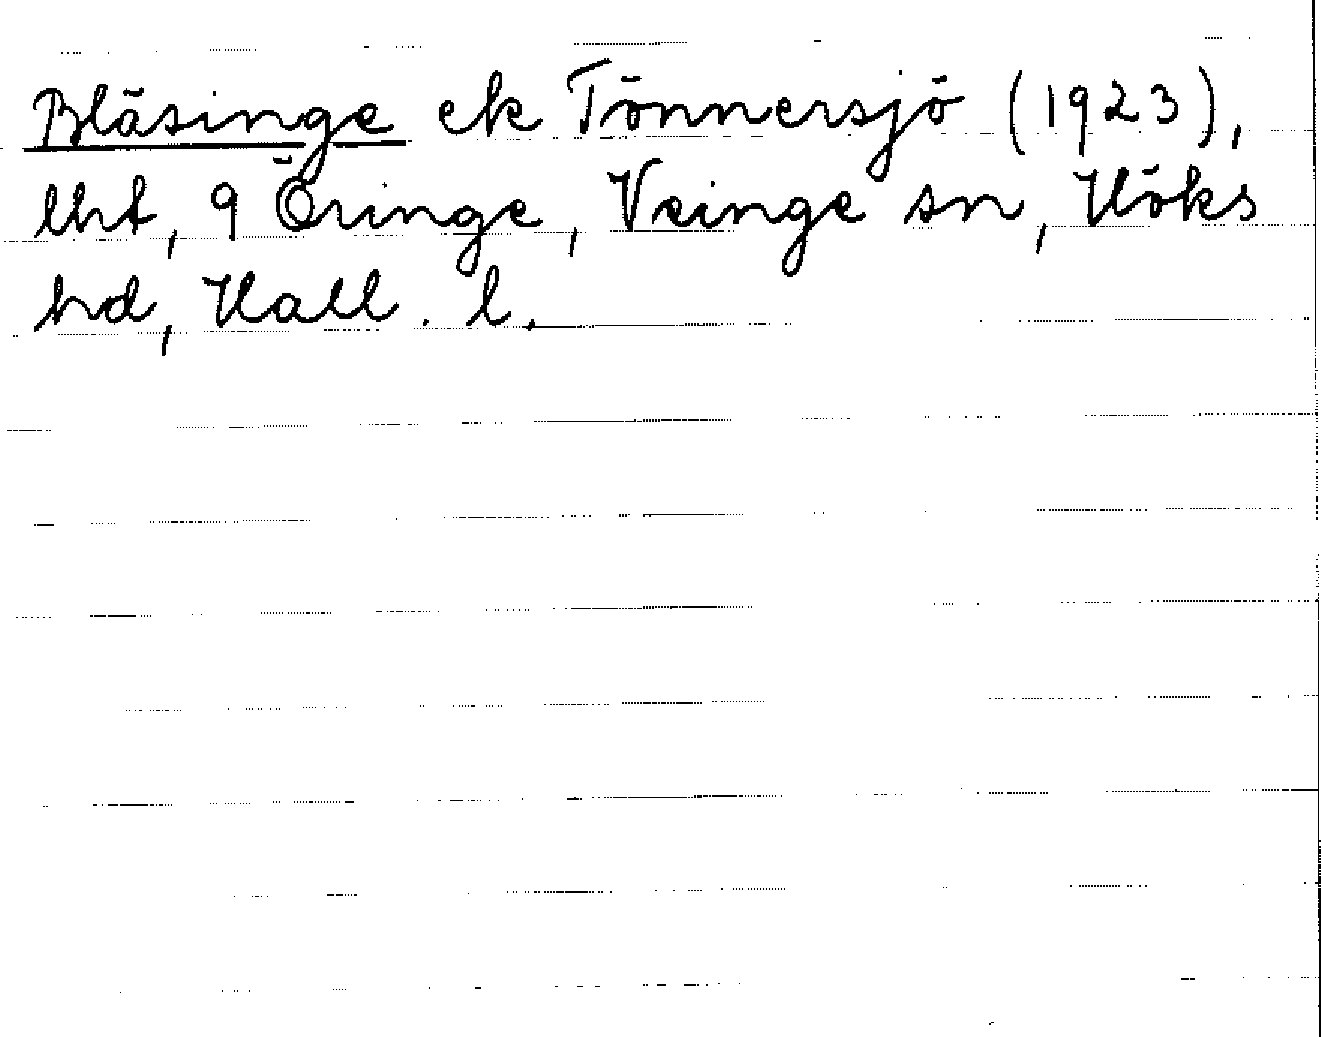 Bläsinge ek Tönnersjö (1923),
lht, 9 Öringe, Veinge sn, Höks
hd, Hall. l.